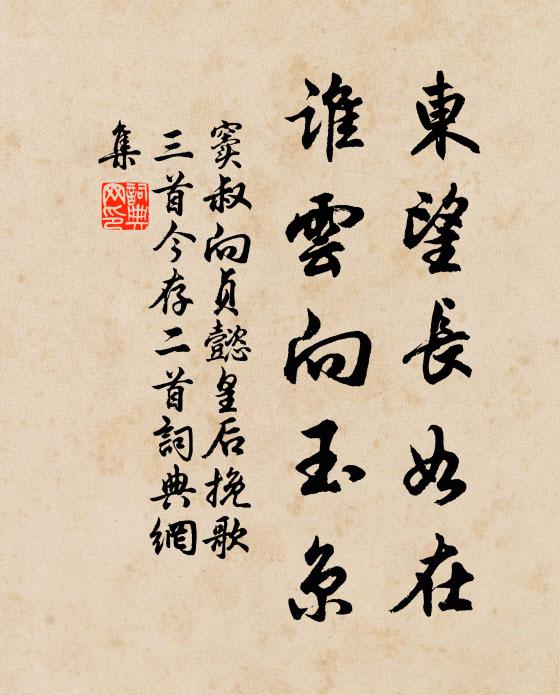 東望長如在
誰雲向玉京
竇叔向貞懿皇后挽歌
三首今存二首詞典網
集
詞典網印